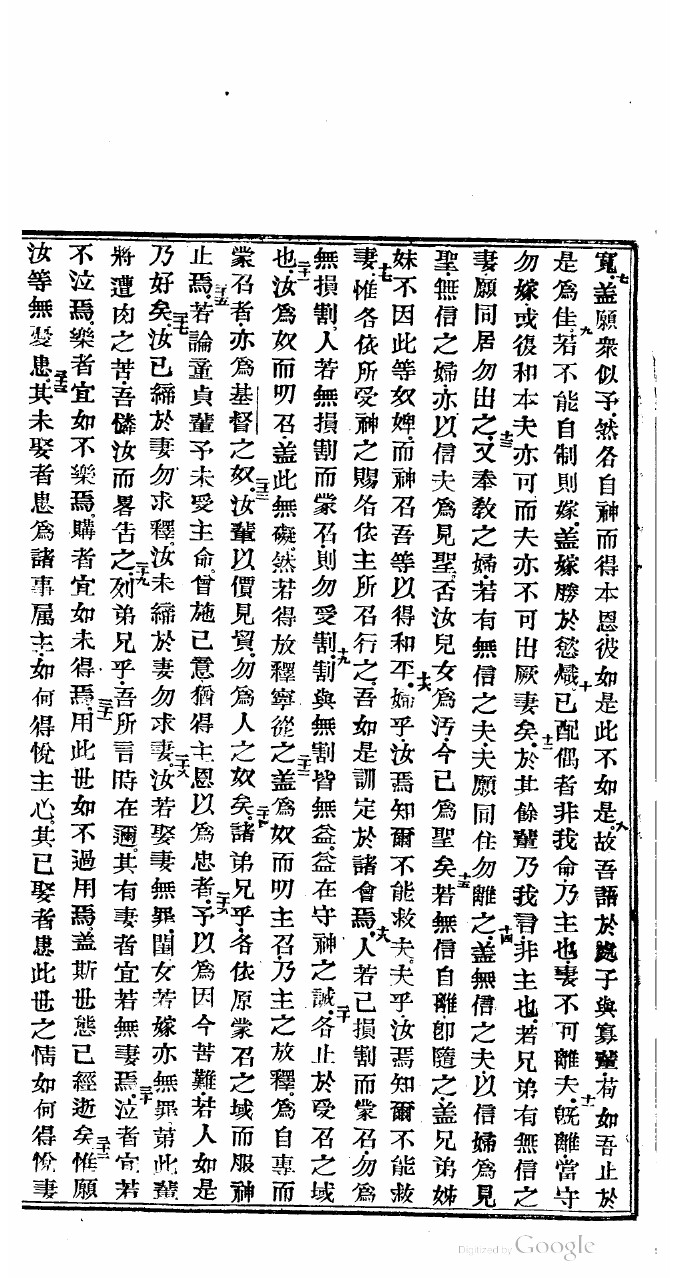 寬七蓋願衆似予然各自神而得本恩彼如是此不如是八故吾語於處子與寡輩苟如吾止於
是爲佳九若不能自制則嫁蓋嫁勝於慾熾十已配偶者非我命乃主也妻不可離夫十一旣離當守
勿嫁或復和本夫亦可而夫亦不可出厥妻矣十二於其餘輩乃我言非主也若兄弟有無信之
妻願同居勿出之十三又奉敎之婦若有無信之夫夫願同住勿離之十四蓋無信之夫以信婦爲見
聖無信之婦亦以信夫爲見聖否汝兒女爲汚今已爲聖矣十五若無信自離卽隨之蓋兄弟姊
妹不因此等奴婢而神召吾等以得和平十六婦乎汝焉知爾不能救夫夫乎汝焉知爾不能救
妻十七惟各依所受神之賜各依主所召行之吾如是訓定於諸會焉十八人若已損割而蒙召勿爲
無損割人若無損割而蒙召則勿受割十九割與無割皆無益益在守神之誡二十各止於受召之域
也二十一汝爲奴而叨召蓋此無礙然若得放釋寧從之二十二蓋爲奴而叨主召乃主之放釋爲自專而
蒙召者亦爲基督之奴二十三汝輩以價見買勿爲人之奴矣二十四諸弟兄乎各依原蒙召之域而服神
止焉二十五若論童貞輩予未受主命曾施己意猶得主恩以爲忠者二十六予以爲因今苦難若人如是
乃好矣二十七汝已締於妻勿求釋汝未締於妻勿求妻二十八汝若娶妻無罪閨女若嫁亦無罪第此輩
將遭肉之苦吾憐汝而畧吿之二十九列弟兄乎吾所言時在邇其有妻者宜若無妻焉三十泣者宜若
不泣焉樂者宜如不樂焉購者宜如未得焉三十一用此世如不過用焉蓋斯世態已經逝矣三十二惟願
汝等無憂患三十三其未娶者患爲諸事屬主如何得悅主心其已娶者患此世之情如何得悅妻
Digitized by Google